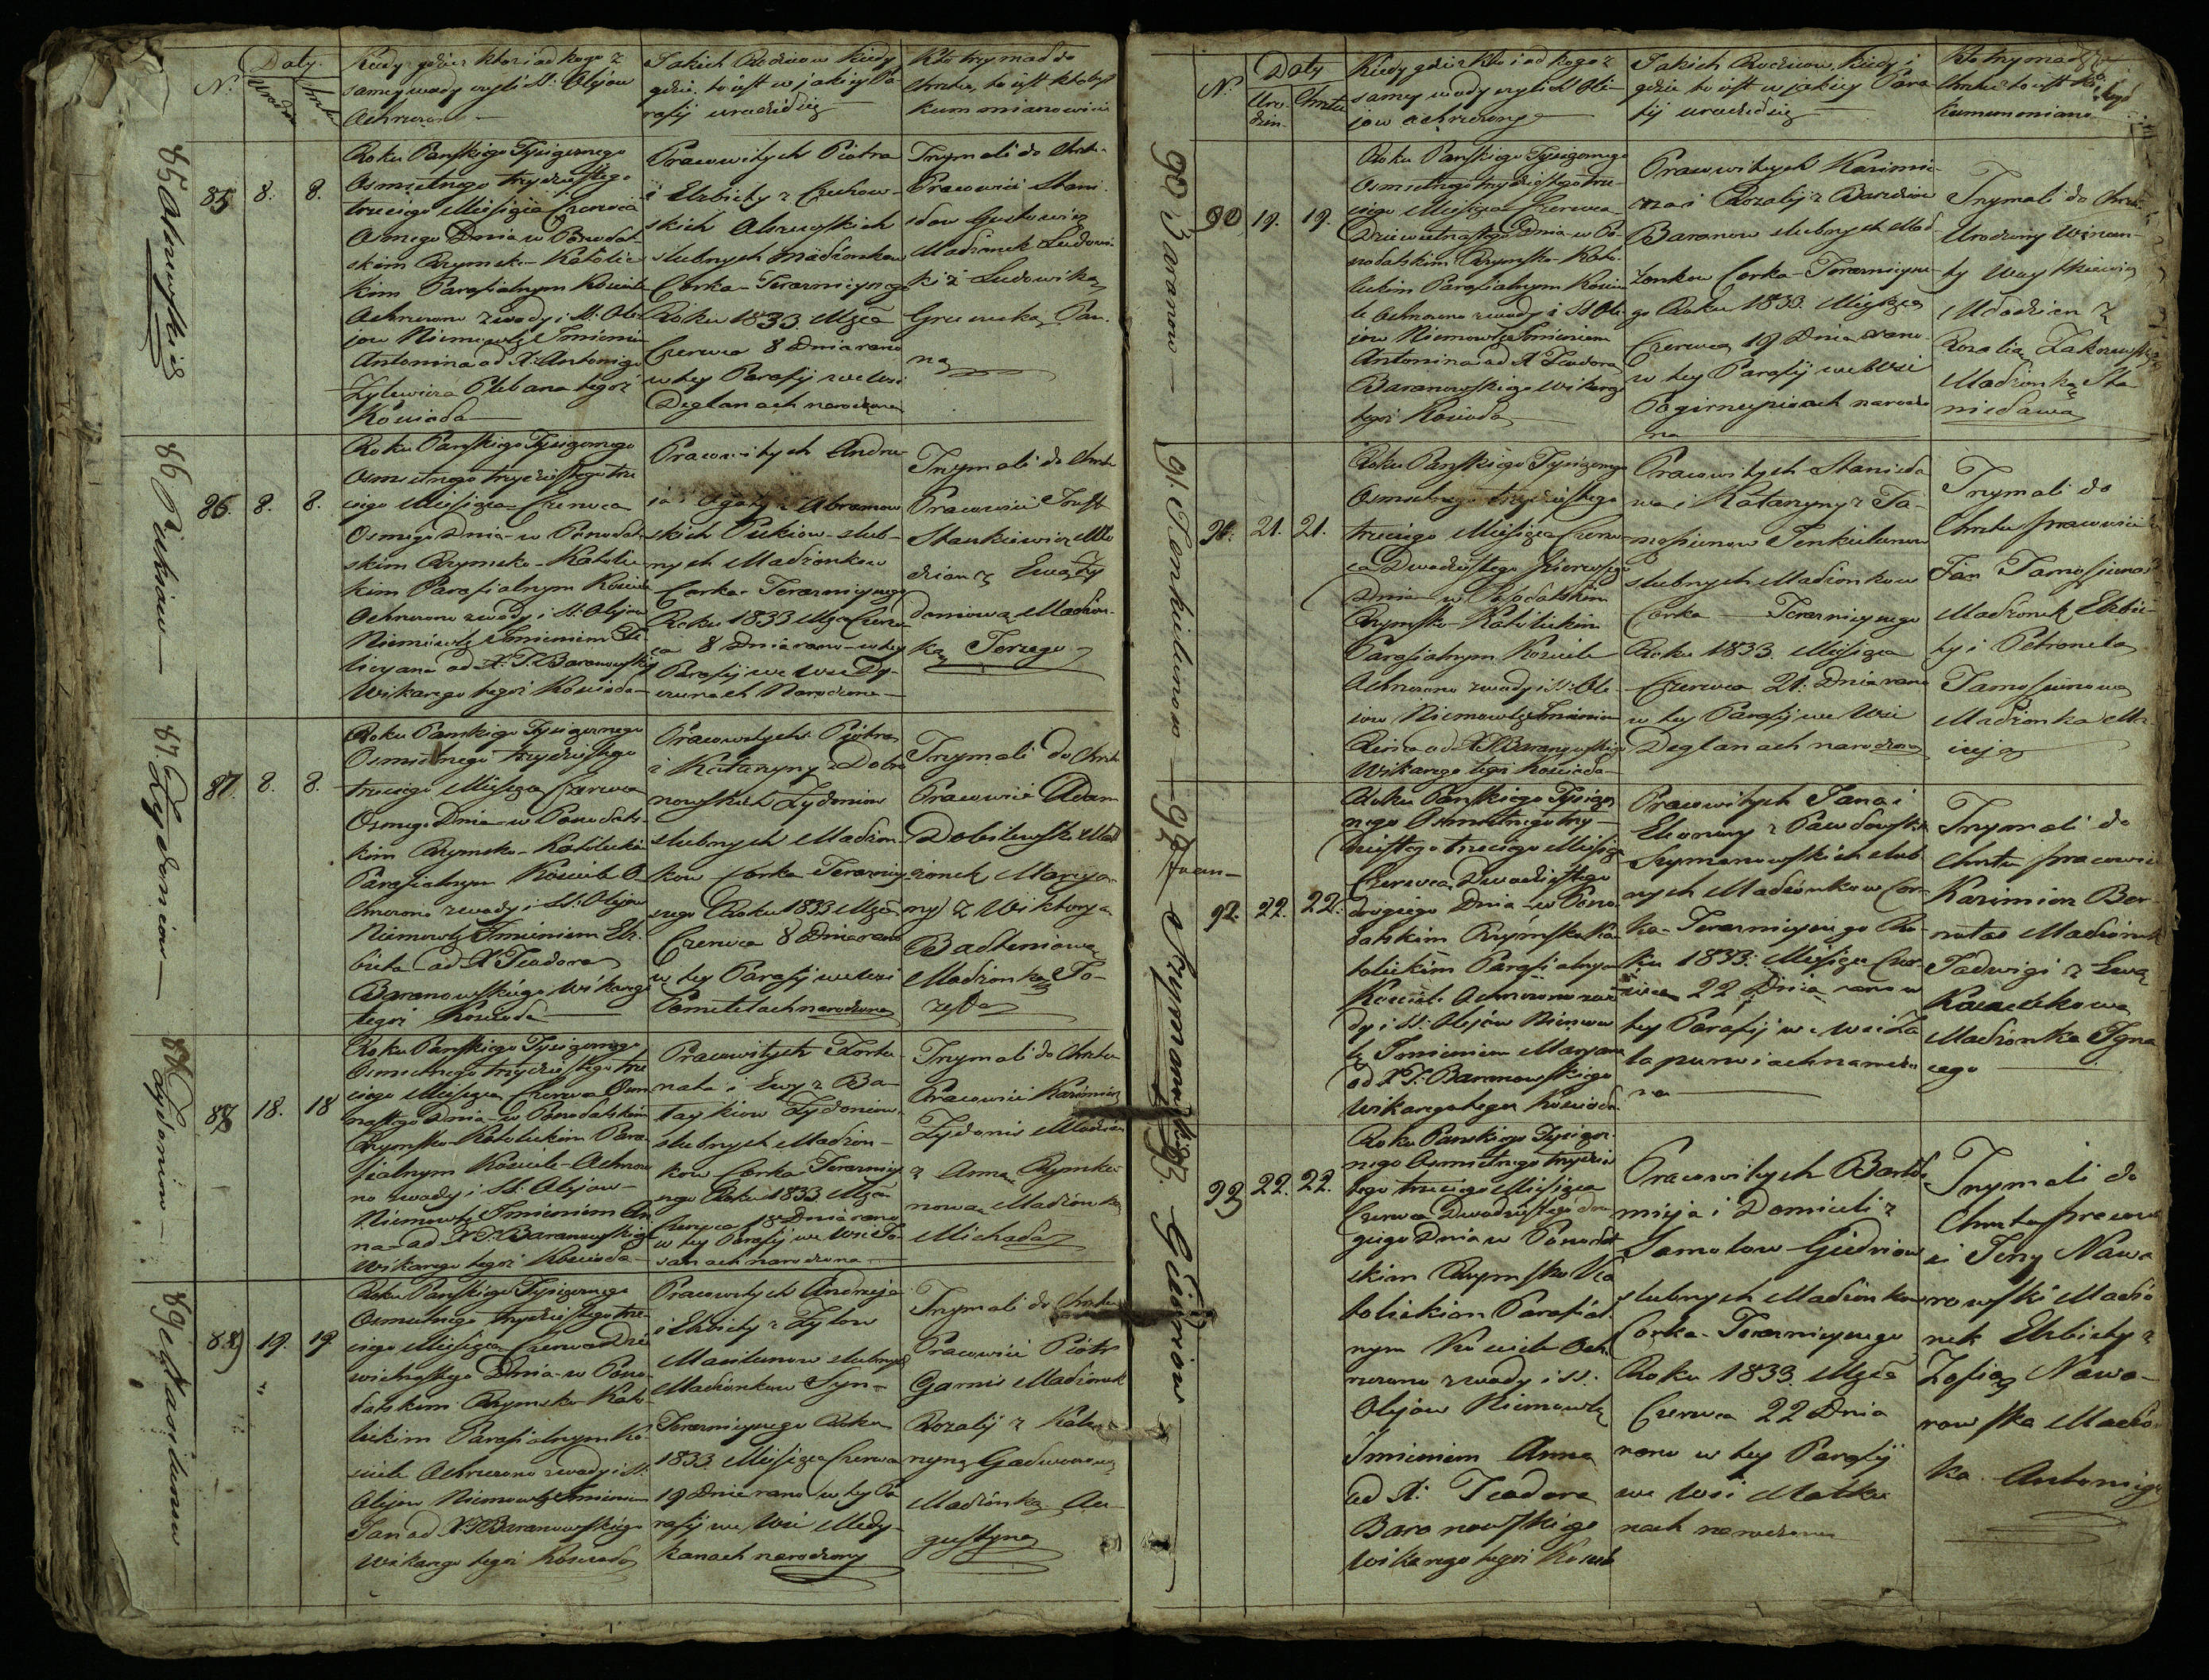 N.
Daty.
Urodze.
Chrztu
Kiedy gdzie kto i od kogo z
samey wody czyli i SS. Olejow
Ochrzczono
Jakich Rodzicow kiedy
gdzie to iest w jakiey Pa-
rafij urodził się
Kto trzymał do
Chrztu, to iest kto był
kumem mianowicie
85
8.
8.
Roku Pańskiego Tysiącznego
Osmsetnego trzydziestego
trzeciego Miesiąca Czerwca
Osmego Dnia w Ponodal-
skim Rzymsko-Katolic
kim Parafialnym Kościele
Ochrzczono z wody i SS. Ole-
jow Niemowle Imieniem
Antonina od X. Antoniego
Zylewicza Plebana tegoż
Kościoła
Pracowitych Piotra
i Elzbiety z Czechow-
skich
slubnych Małżonkow
Corka Teraznieyszego
Roku 1833 Mzca
Czerwca 8 Dnia rano
w tey Parafij we Wsi
Deglanach narodzona
Trzymali do Chrztu
Pracowici Stani-
sław
Małżonek Ludowi-
ki z Ludowiką
Pan-
ną
86.
8.
8.
Roku Pańskiego Tysiącznego
Osmsetnego trzydziestego trze
ciego Miesiąca Czerwca
Osmego Dnia w Ponodal-
skim Rzymsko-Katolic
kim Parafialnym Kościele
Ochrzczono z wody i SS. Olejow
Niemowle Imieniem Fe-
licyana od X. T. Baranowskiego
Wikarego tegoż Kościoła
Pracowitych Andrze
ja i Agaty z Abramow
skich Pukiow slub-
nych Małżonkow
Corka Teraznieyszego
Roku 1833 Mzca Czerw
ca 8 Dnia rano w tey
Parafij we Wsi
Narodzona
Trzymali do Chrztu
Pracowici Jozef
Stankiewicz Mło
dzian z Ewą Zy
doniową Małżon-
ką Jerzego
87.
8.
8.
Roku Pańskiego Tysiącznego
Osmsetnego trzydziestego
trzeciego Miesiąca Czerwca
Osmego Dnia w Ponodals-
kim Rzymsko-Katolickim
Parafialnym Kościele O-
chrzczono z wody i SS. Olejow
Niemowle Imieniem Elz-
bieta od X Teodora
Baranowskiego Wikarego
tegoż Kościoła
Pracowitych Piotra
i Katarzyny z Dobro
nowskich Zydoniow
slubnych Małżon-
kow Corka Terazniey
szego Roku 1833 Mzca
Czerwca 8 Dnia rano
w tey Parafij we Wsi
narodzona
Trzymali do Chrztu
Pracowici Adam
Małżonek Marya-
ny z Wiktoryą
Małżonką Jo-
zefa
88
18.
18
Roku Pańskiego Tysiącznego
Osmsetnego trzydziestego trze
ciego Miesiąca Czerwca Osm
nastego Dnia w Ponodalskim
Rzymsko-Katolickim Para-
fialnym Kościele Ochrzczo
no z wody i SS. Olejow
Niemowle Imieniem An-
na od X T Baranowskiego
Wikarego tegoż Kościoła
Pracowitych Fortu-
nata i Ewy z Ba-
Zydoniow
slubnych Małżon-
kow Corka Terazniey
szego Roku 1833 Mzca
Czerwca 18 Dnia rano
w tey Parafij we Wsi
narodzona
Trzymali do Chrztu
Pracowici Kazimierz
Zydonis Młodzian
z Anną Rymke-
nową Małżonką
Michała
89
19.
19
Roku Pańskiego Tysiącznego
Osmsetnego trzydziestego trze-
ciego Miesiąca Czerwca Dzie
wietnastego Dnia w Pono-
dalskim Rzymsko-Kato-
lickim Parafialnym Ko-
ściele Ochrzczono z wody i SS.
Olejow Niemowle Imieniem
Jan od X T Baranowskiego
Wikarego tegoż Kościoła
Pracowitych Andrzeja
i Elzbiety z Zylow
Masilunow slubnych
Małżonkow Syn
Teraznieyszego Roku
1833 Miesiąca Czerwca
19 Dnia rano w tey Pa-
rafij we Wsi Medy-
kanach narodzony
Trzymali do Chrztu
Pracowici Piotr
Garnis Małżonek
Rozalij z Kata-
rzyną
Małżonką Au-
gustyna
86 Pukiow
87. Zydoniow
88 Zydoniow
89 Masilunow
N.
Daty
Uro-
dzin.
Chrztu
Kiedy gdzie kto i od kogo z
samey wody czyli i SS Ole-
jow ochrzczony
Jakich Rodzicow, kiedy i
gdzie to iest w jakiey Para
fij urodził się
Kto trzymał do
Chrztu to iest kto był
kumem mianow.
90
19.
19.
Roku Pańskiego Tysiącznego
Osmsetnego trzydziestego trze-
ciego Miesiąca Czerwca
Dziewietnastego Dnia w Po-
nodalskim Rzymsko-Kato-
lickim Parafialnym Koscie
le Ochrzczono z wody i SS Ole
jow Niemowle Imieniem
Antonina od X Teodora
Baranowskiego Wikarego
tegoż Kościoła
Pracowitych Kazimie-
rza i Rozalij z
Baranow slubnych Mał
żonkow Corka Teraznieysze-
go Roku 1833. Miesiąca
Czerwca 19 Dnia rano
w tey Parafij we Wsi
narodzo
na
Trzymali do Chrztu
Urodzony Wincen-
ty Woytkiewicz
Młodzian z
Rozalią
Małżonką Sta
nisława
91.
21.
21.
Roku Pańskiego Tysiącznego
Osmsetnego trzydziestego
trzeciego Miesiąca Czerw-
ca Dwudziestego Pierwszego
Dnia w Ponodalskim
Rzymsko-Katolickim
Parafialnym Kościele
Ochrzczono z wody i SS. Ole-
jow Niemowle Imieniem
od X T Baranowskiego
Wikarego tegoż Kościoła
Pracowitych Stanisła
wa i Katarzyny z Ta-
moszunow Jenkielunow
slubnych Małżonkow
Corka Teraznieyszego
Roku 1833. Miesiąca
Czerwca 21. Dnia rano
w tey Parafij we Wsi
Deglanach narodzona
Trzymali do
Chrztu pracowici
Jan Tamoszunas
Małżonek Elzbie-
ty i Petronela
Tamoszunowa
Małżonka Ma-
cieja
92.
22.
22.
Roku Pańskiego Tysiącz
nego Osmsetnego trzy-
dziestego trzeciego Miesiąca
Czerwca Dwudziestego
drugiego Dnia w Pono-
dalskim Rzymsko Ka-
tolickim Parafialnym
Kościele Ochrzczono z wo
dy i SS. Olejów Niemow
le Imieniem Maryanna
od X T. Baranowskiego
Wikarego tegoż Kościoła
Pracowitych Jana i
Eleonory z Pawłowskich
Szymanowskich slub
nych Małżonkow Cor-
ka Teraznieyszego Ro-
ku 1833: Miesiąca Czer-
wca 22 Dnia rano w
tey Parafij we Wsi
narodzo
na
Trzymali do
Chrztu pracowici
Kazimierz Ber-
natas Małżonek
Jadwigi z Ewą
Małżonka Igna
cego
93
22.
22.
Roku Pańskiego Tysiącz-
nego Osmsetnego trzydzies
tego trzeciego Miesiąca
Czerwca Dwudziestego dru-
giego Dnia w Ponodal-
skim Rzymsko Ka
tolickim Parafial-
nym Kościele Och-
rzczono z wody i SS.
Olejow Niemowle
Imieniem Anna
od X. Teodora
Baranowskiego
Wikarego tegoż Kościoła
Pracowitych Bartło-
mieja i Domiceli z
Giedriow
slubnych Małżonkow
Corka Teraznieyszego
Roku 1833. Mzca
Czerwca 22 Dnia
rano w tey Parafij
we Wsi
nach narodzona
Trzymali do
Chrztu pracowi-
ci Jerzy Nawa
rowski Małżo
nek Elzbiety z
Zofią Nawa-
rowską Małżon
ka Antoniego
90 Baranow
91. Jenkielunow
92
Szymanowskich
93. Giedriow